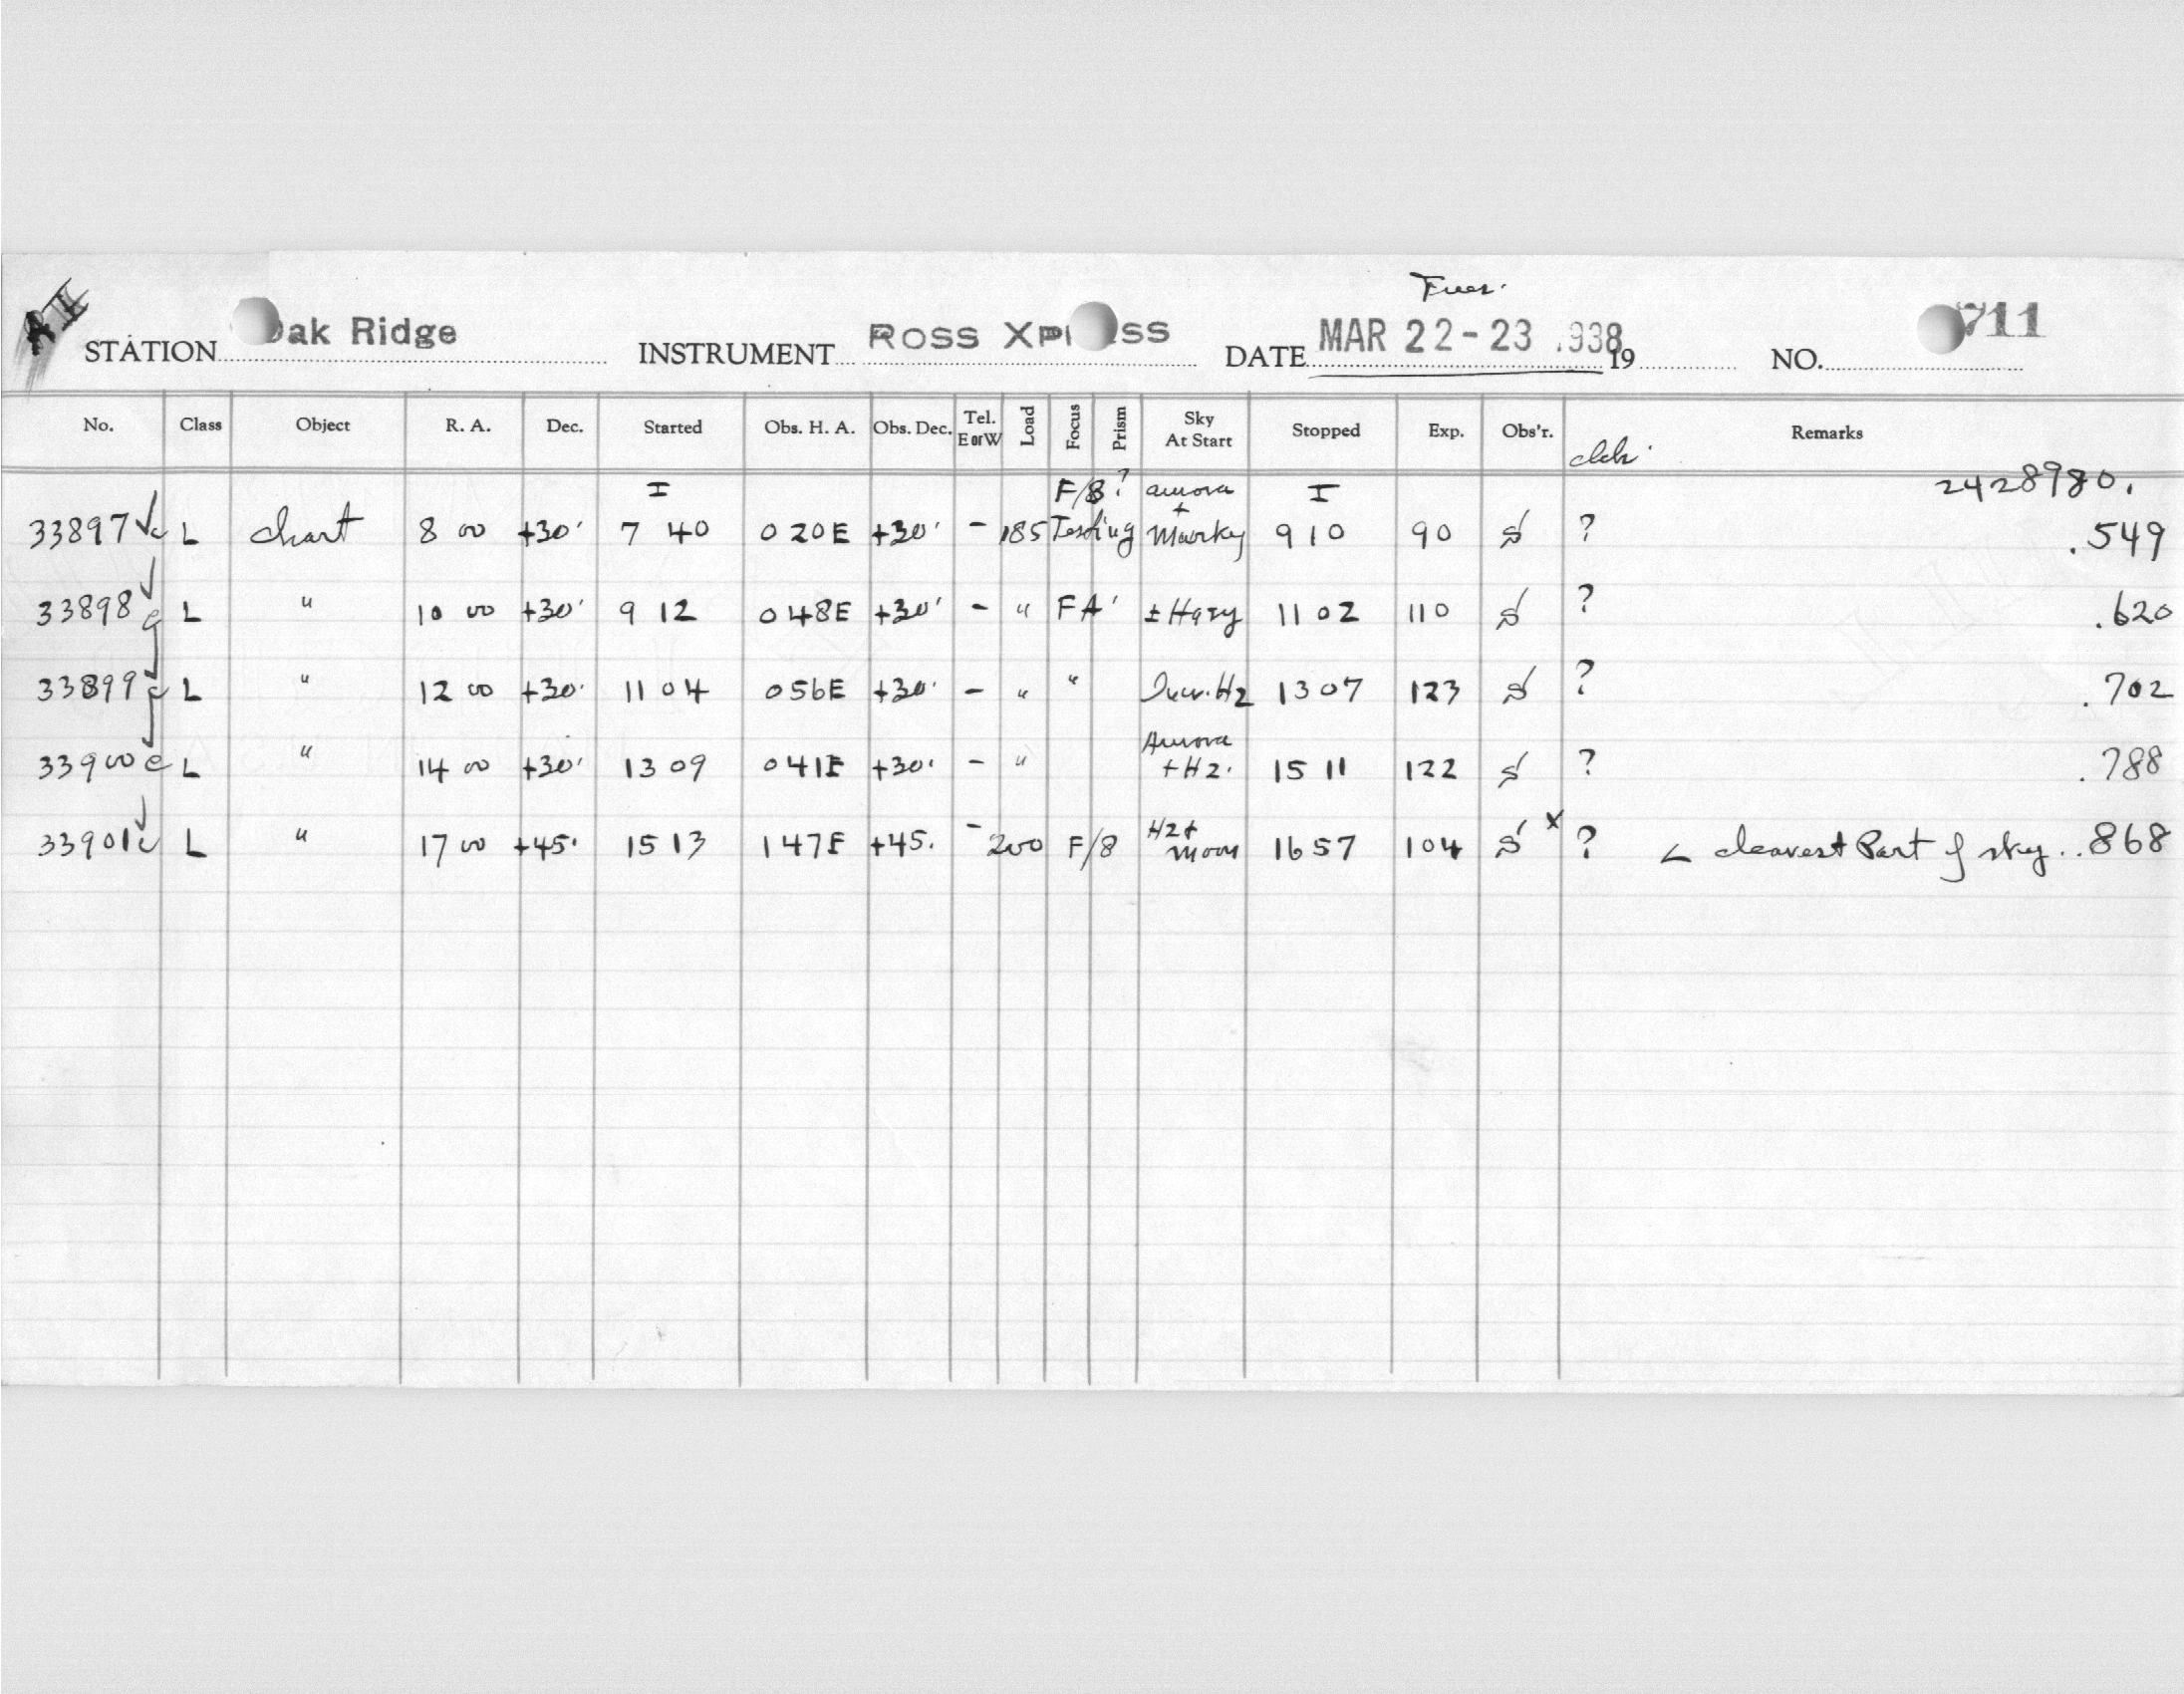 Tues.
STATION Oak Ridge INSTRUMENT ROSS XPRESS DATE MAR 22-23 .938 19 NO. 711
No. Class Object R. A. Dec. Started Obs. H. A. Obs. Dec. Tel. E or W Load Focus Prism Sky At Start Stopped Exp. Obs'r. Remarks
I F/8? aurora + I 2428980.
33897 L chart 8 00 +30° 7 40 0 20E +30° - 185 Testing Murky 9 10 90 ? .549
33898 L " 10 00 +30° 9 12 0 48E +30° - " FA' ± Hazy 11 02 110 ? .620
33899 L " 12 00 +30° 11 04 0 56E +30° - " " Incr. Hz 13 07 123 ? .702
Aurora
33900 L " 14 00 +30° 13 09 0 41E +30° - " + Hz. 15 11 122 ? .788
Hz +
33901 L " 17 00 +45° 15 13 1 47E +45° - 200 F/8 moon 16 57 104 x ? clearest Part of sky .. 868